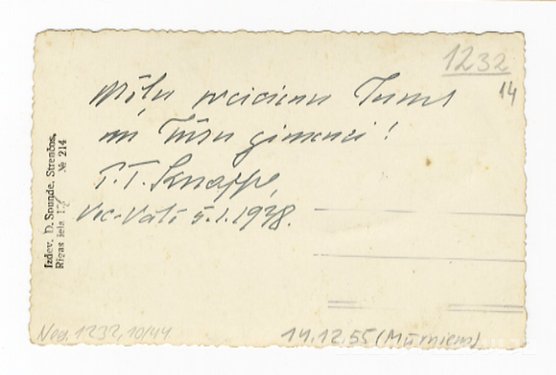 1232
14
Mīļu sveicienu Jums
un Jūsu ģimenei!
T.T. Knappe,
Vec-Vāle 5.1.1938.
Izdev. D. Spunde, Strenčos,
Rīgas ielā 17 № 214
Neg. 1232,10/44
14.12.55 (Mūrniem)